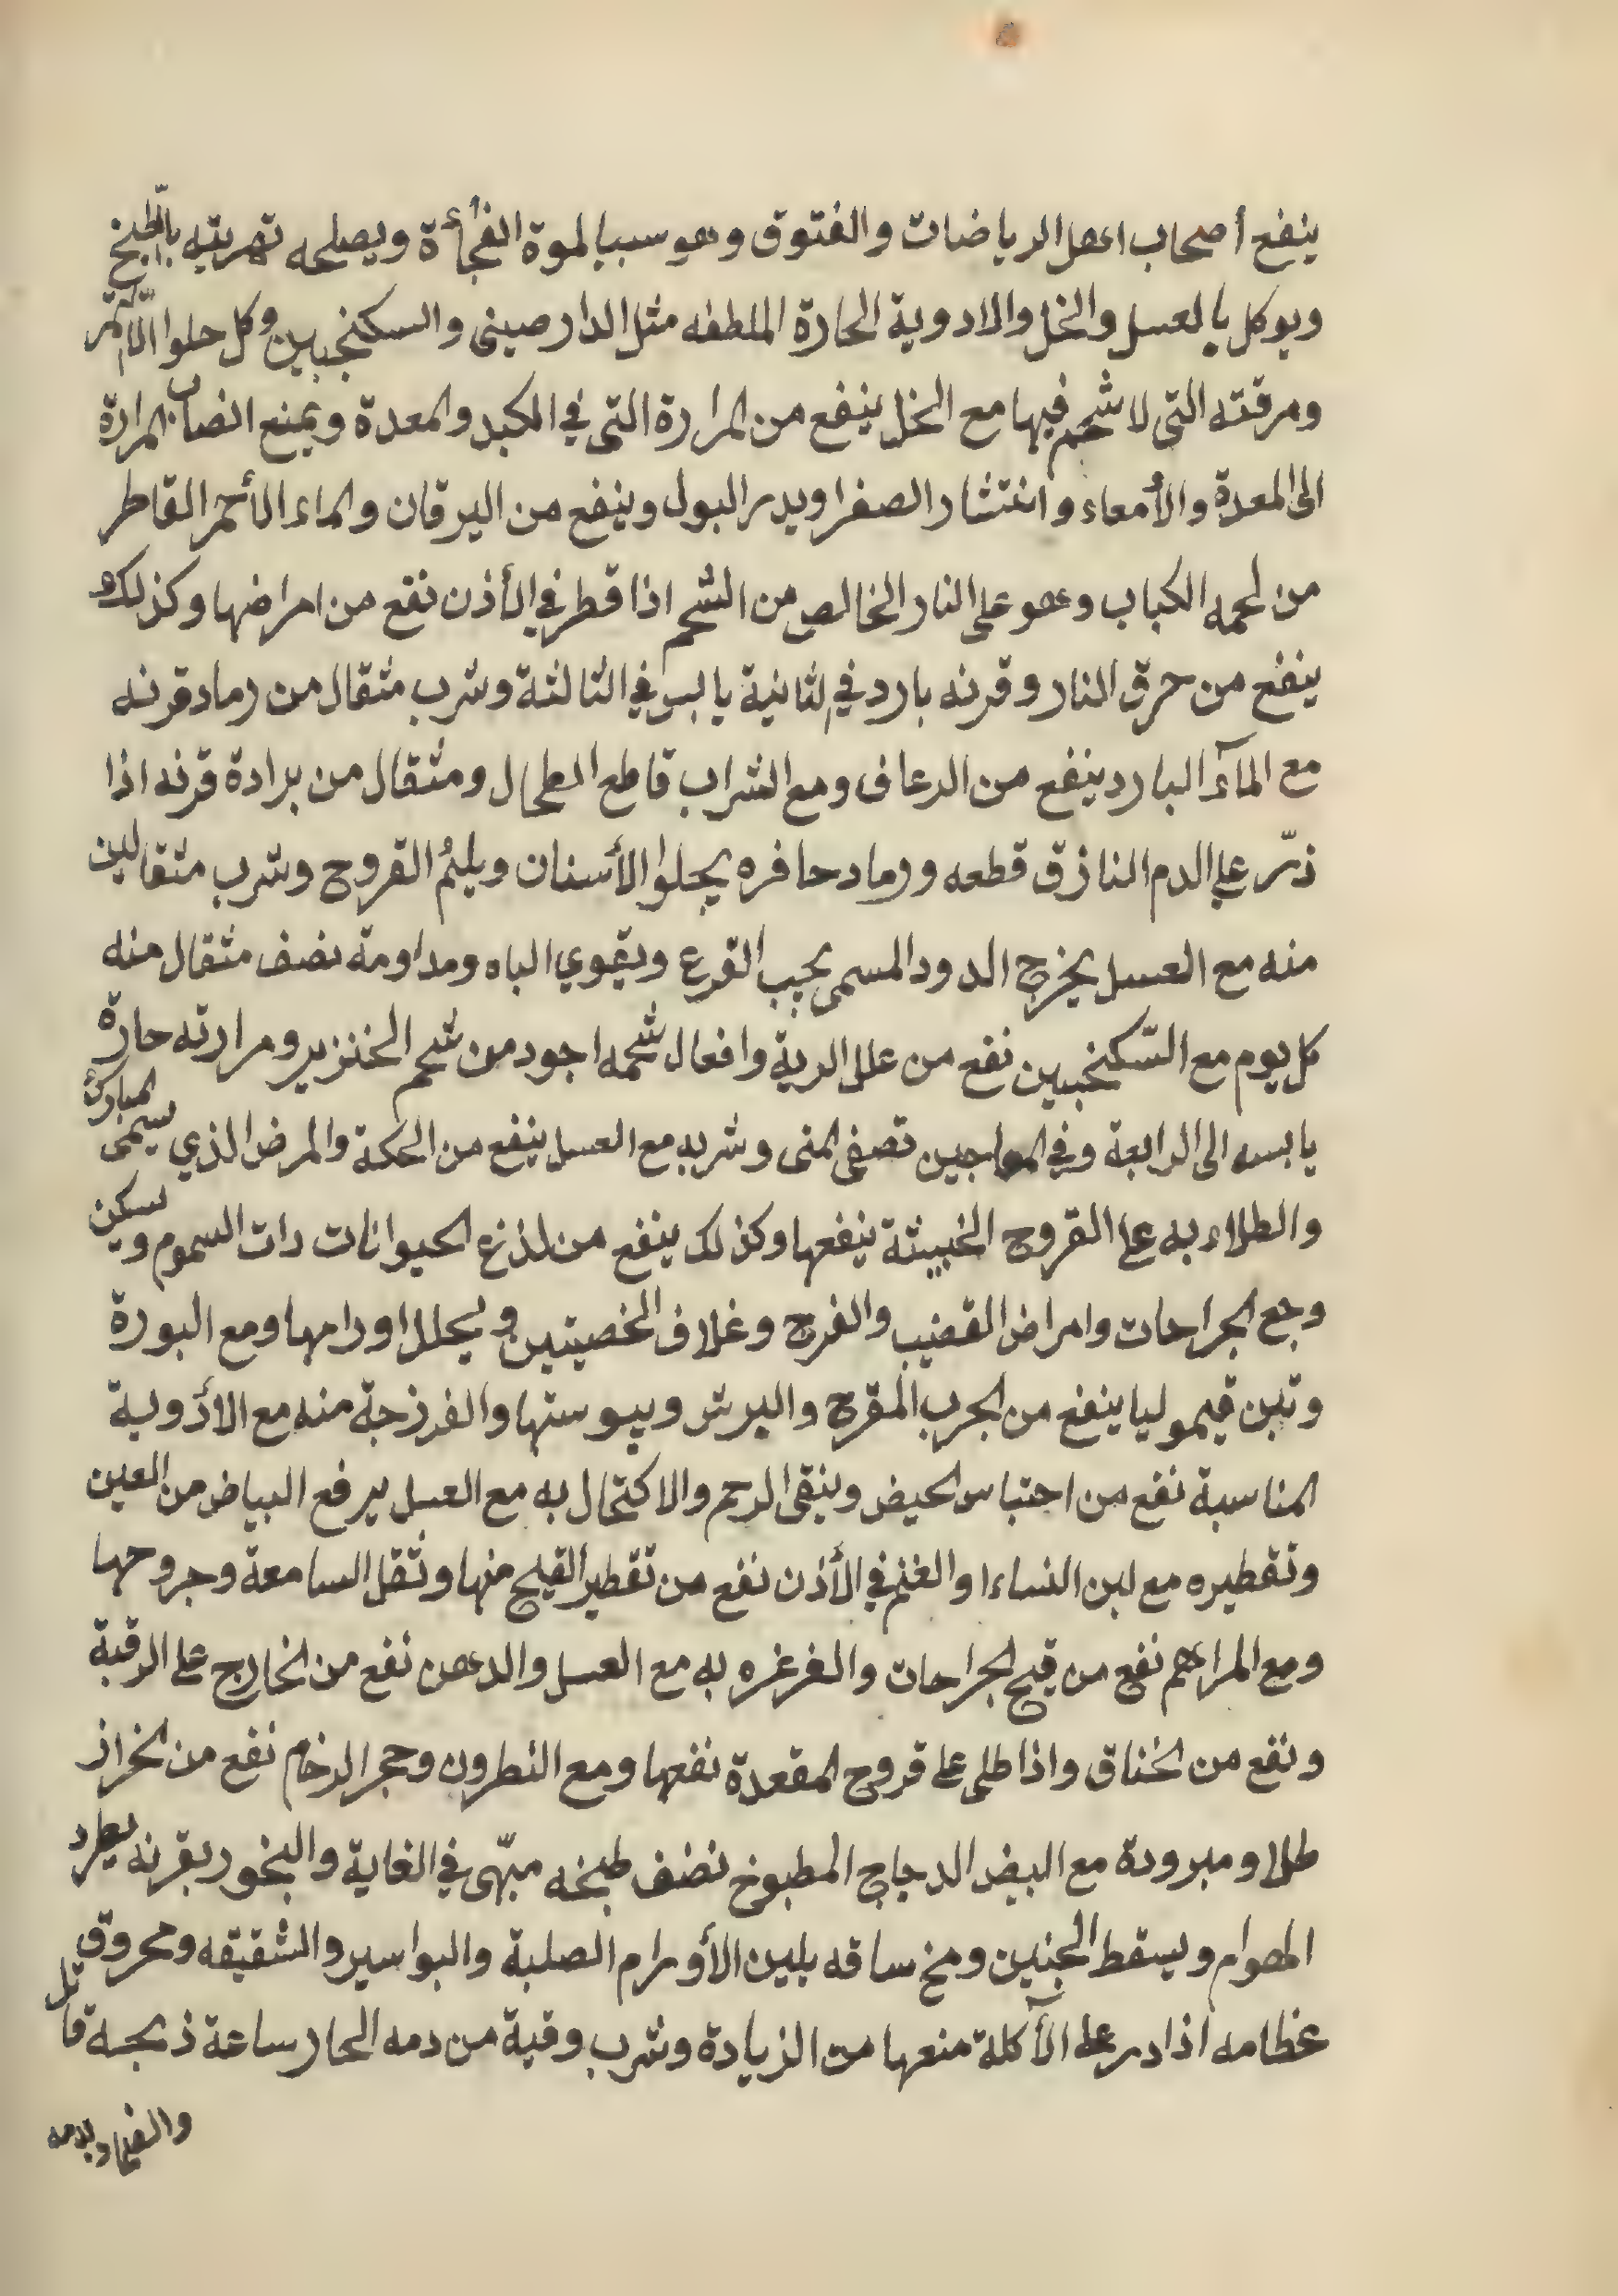 ينفع أصحاب اهل الرياضات والفتوق وهو سببا لموة الفجأة ويصلحه تهريته بالطبخ
ويوكل بالعسل والخل والادوية الحارة الملطفه مثل الدارصيني والسكنجبين وكل حلوا الا التمر
ومرقته التى لا شحم فيها مع الخل ينفع من المرارة التى في الكبد والمعدة ويمنع انصاب المرارة
الى المعدة والأمعاء وانتشار الصفرا ويدر البول وينفع من اليرقان والماء الأحمر القاطر
من لحمه الكباب وهو على النار الخالص من الشحم اذا قطر في الأذن نفع من امراضها وكذلك
ينفع من حرق النار وقرنه بارد في الثانية يابس في الثالثة وشرب مثقال من رماد قرنه
مع المآء البارد ينفع من الرعاف ومع الشراب قاطع الطحال ومثقال من برادة قرنه اذا
ذرّ على الدم النازق قطعه ورماد حافره يجلوا الأسنان ويليمُ القروح وشرب مثقالين
منه مع العسل يخرج الدود المسمى بحب القرع ويقوي الباه ومداومة نصف مثقال منه
كل يوم مع السّكنجبين نفع من علل الرية وافعال شحمه اجود من شحم الخنزير ومرارته حارة
يابسه الى الرابعة وفي المعاجين تصفى المنى وشربه مع العسل ينفع من الحكة والمرض الذي يسمى المبارك
والطلاء به على القروح الخبيثة ينفعها وكذلك ينفع من لذغ الحيوانات دات السموم ويسكن
وجع الجراحات وامراض القضيب والفرج وغلاف الخصيتين ويحلل اورامها ومع البورة
وتبن قيموليا ينفع من الجرب المقرح والبرش ويبوستها والفرزجة منه مع الادوية
المناسبة نفع من احتباس الحيض وينقى الرحم والاكتحال به مع العسل يرفع البياض من العين
وتقطيره مع لبن النساء او الغنم في الأذن نفع من تقطير القيح منها وثقل السامعة وجروحها
ومع المراهم نفع من قيح الجراحات والغرغره به مع العسل والدهن نفع من الخارج على الرقبة
ونفع من الخناق واذا طلى على قروح المقعدة نفعها ومع النطرون وحجر الرخام نفع من الخراز
طلا ومبرودة مع البيض الدجاج المطبوخ نضف طبخه مبهّى في الغاية والبخور بقرنه يطرد
الهوام ويسقط الجنين ومخ ساقه يلين الأورام الصلبة والبواسير والشقيقه ومحروق
عظامه اذا در على الآكلة منعها من الزيادة وشرب وقية من دمه الحار ساعة ذبحه قاتل
والضماد بدمه